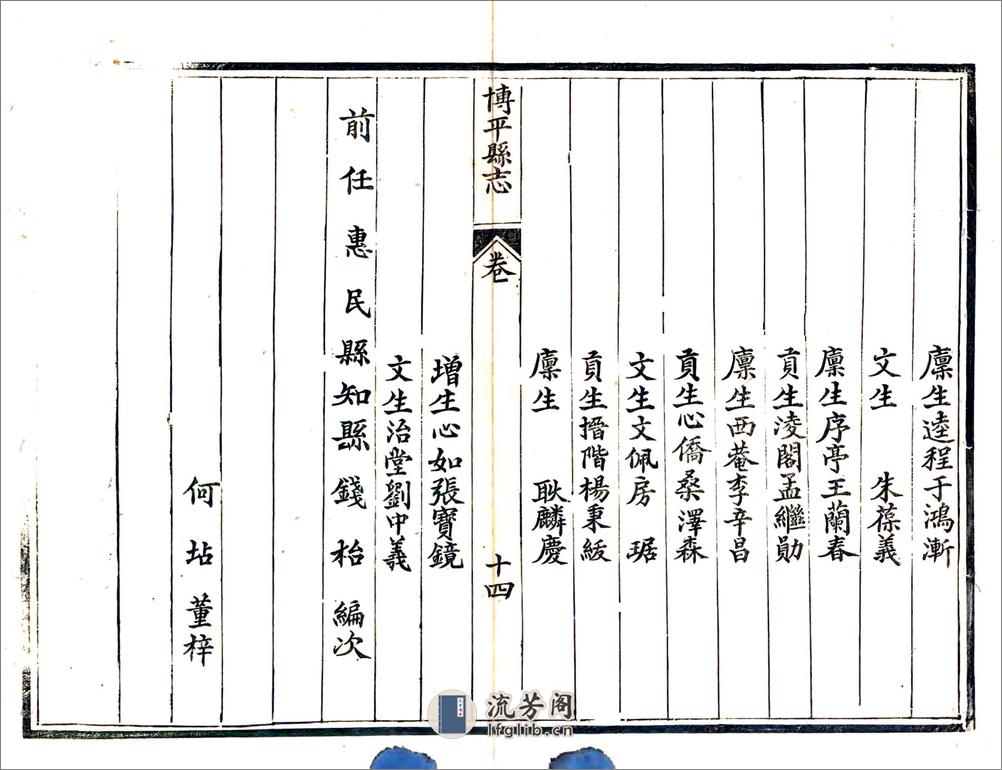 廩生逵程于鴻漸
文生　朱葆義
廩生序亭王蘭春
貢生淩閣孟繼勛
廩生西菴李辛昌
貢生心僑桑澤森
文生文佩房　琚
貢生搢階楊秉綬
廩生　耿麟慶
博平縣志
卷一
十四
增生心如張寶鏡
文生治堂劉中義
前任惠民縣知縣錢枱編次
何坫董梓
流芳阁
lfglib.cn